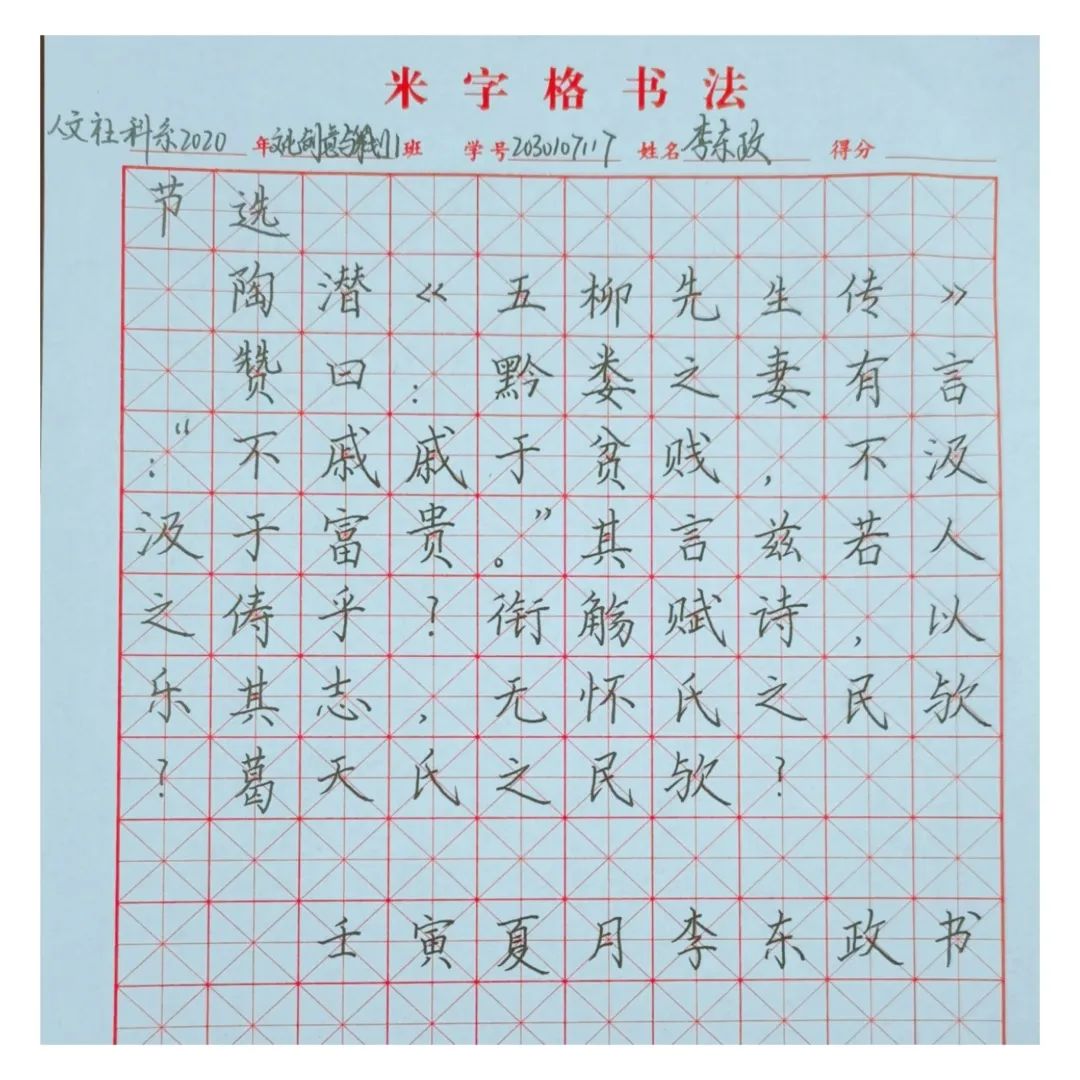 米字格书法
人文社科系2020年文化创意与策划1班 学号2030107117 姓名李东政 得分
节选
陶潜《五柳先生传》
赞曰:黔娄之妻有言
:“不戚戚于贫贱,不汲
汲于富贵。”其言兹若人
之俦乎?衔觞赋诗,以
乐其志,无怀氏之民欤
?葛天氏之民欤?
壬寅夏月李东政书